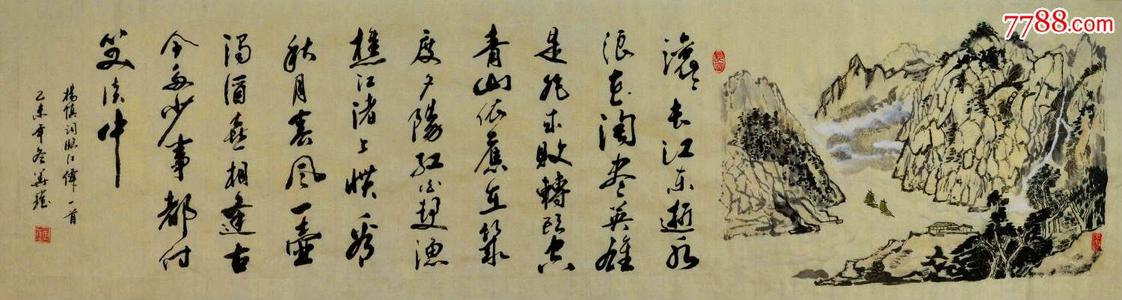 7788.com
滚滚长江东逝水
浪花淘尽英雄
是非成敗轉头空
青山依舊在幾
度夕陽红白发渔
樵江渚上惯看
秋月春风一壶
浊酒喜相逢古
今多少事都付
笑谈中
楊慎词临江仙一首